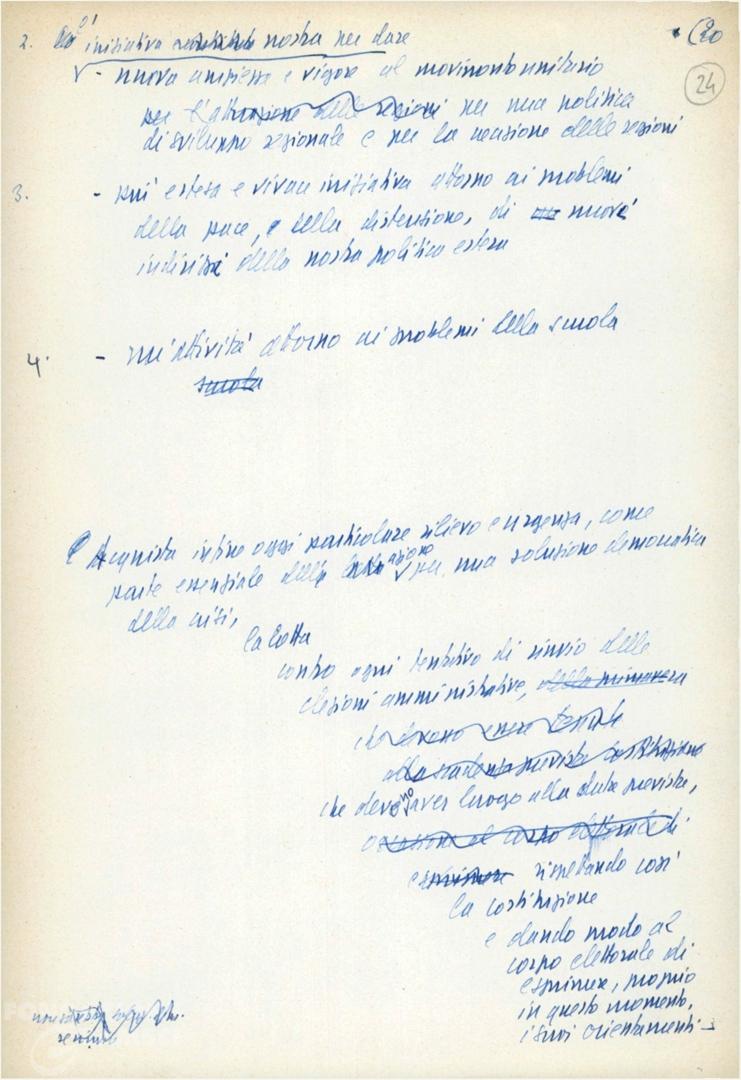 2. iniziativa nostra per dare (20
24
- nuova ampiezza e vigore al movimento unitario
per l'attuazione delle regioni per una politica
di sviluppo regionale e per la creazione delle regioni
3. - più estesa e vivace iniziativa attorno ai problemi
della pace, e della distensione, di nuovi
indirizzi della nostra politica estera
4. - un'attività attorno ai problemi della scuola
scuola
Acquista infine oggi particolare rilievo e urgenza, come
parte essenziale della azione per una soluzione democratica
della crisi,
la lotta
contro ogni tentativo di rinvio delle
elezioni amministrative, della primavera
che devono essere tenute
alla scadenza prevista costituzione
che devono aver luogo alla data prevista,
al corpo elettorale di
esprimere rispettando così
la costituzione
e dando modo al
corpo elettorale di
esprimere, proprio
in questo momento,
i suoi orientamenti -